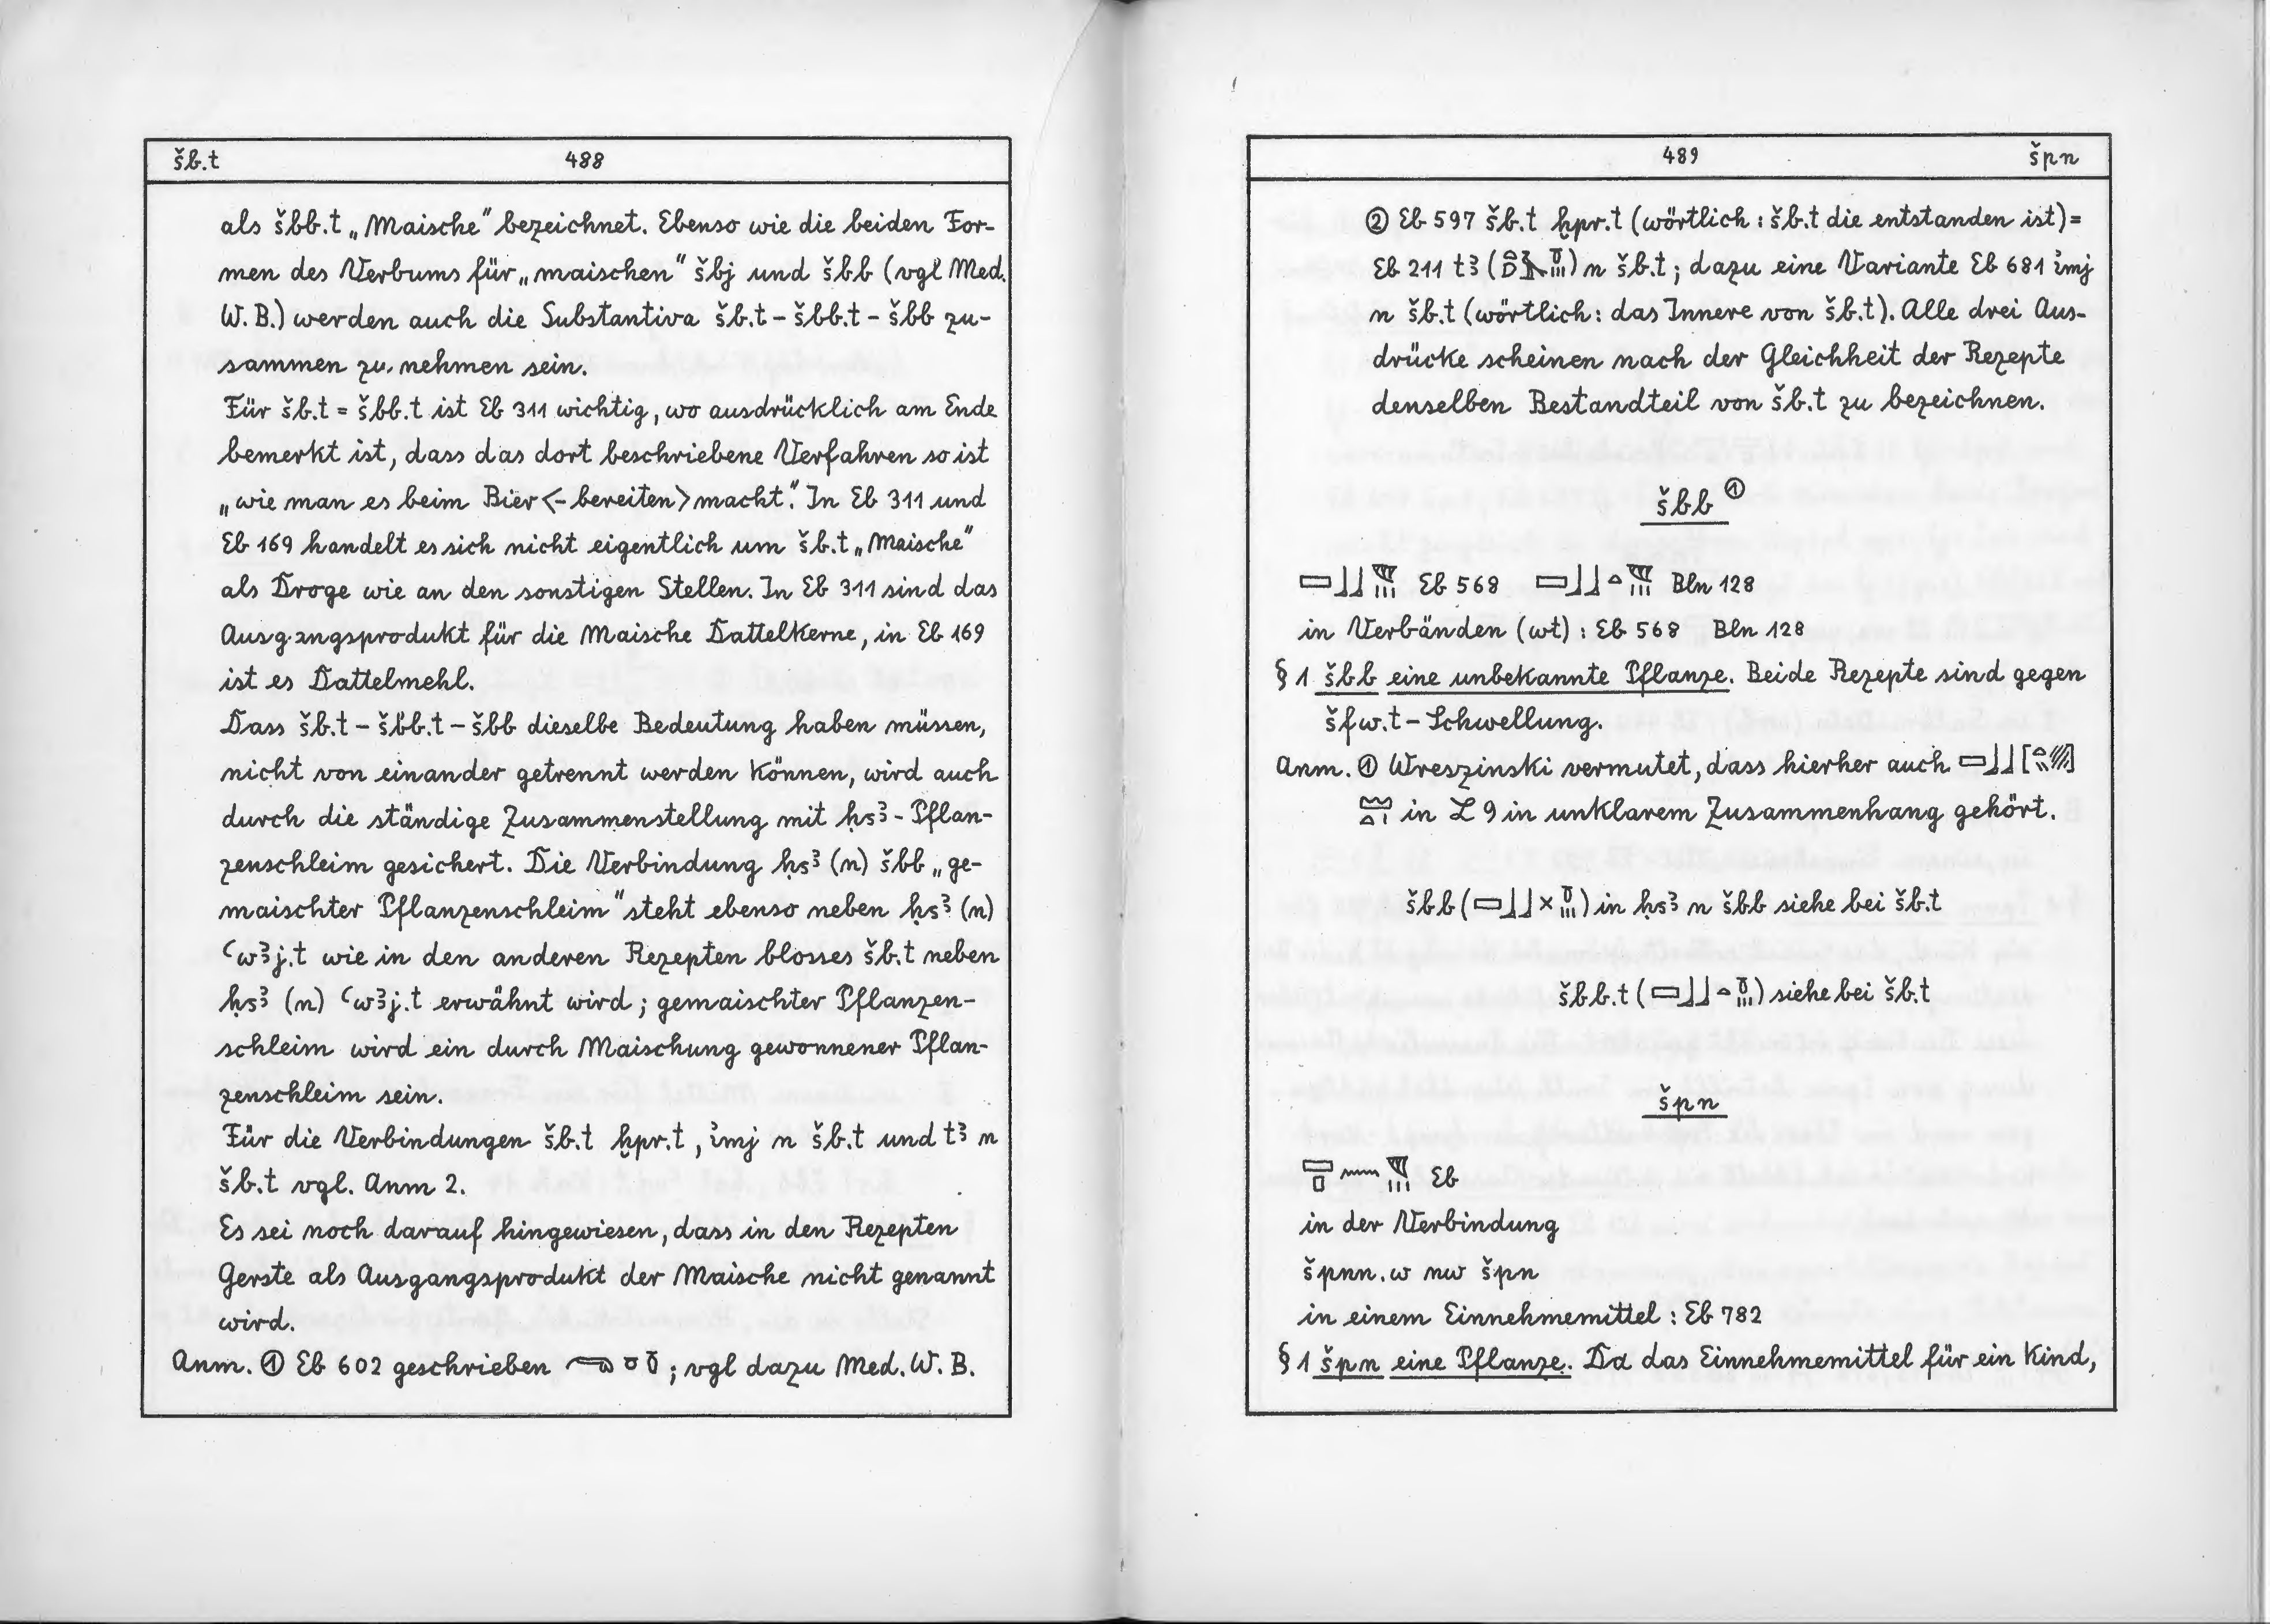 šb.t 488
als šbb.t „Maische" bezeichnet. Ebenso wie die beiden For-
men des Verbums für „maischen" šbj und šbb (vgl Med.
W. B.) werden auch die Substantiva šb.t - šbb.t - šbb zu-
sammen zu nehmen sein.
Für šb.t = šbb.t ist Eb 311 wichtig, wo ausdrücklich am Ende
bemerkt ist, dass das dort beschriebene Verfahren so ist
„wie man es beim Bier <- bereiten> macht". In Eb 311 und
Eb 169 handelt es sich nicht eigentlich um šb.t „Maische"
als Droge wie an den sonstigen Stellen. In Eb 311 sind das
Ausgangsprodukt für die Maische Dattelkerne, in Eb 169
ist es Dattelmehl.
Dass šb.t - šbb.t - šbb dieselbe Bedeutung haben müssen,
nicht von einander getrennt werden können, wird auch
durch die ständige Zusammenstellung mit ḥsꜣ - Pflan-
zenschleim gesichert. Die Verbindung ḥsꜣ (n) šbb „ge-
maischter Pflanzenschleim" steht ebenso neben ḥsꜣ (n)
ꜥwꜣj.t wie in den anderen Rezepten blosses šb.t neben
ḥsꜣ (n) ꜥwꜣj.t erwähnt wird; gemaischter Pflanzen-
schleim wird ein durch Maischung gewonnener Pflan-
zenschleim sein.
Für die Verbindungen šb.t ḫpr.t, ꞽmj n šb.t und tꜣ n
šb.t vgl. Anm 2.
Es sei noch darauf hingewiesen, dass in den Rezepten
Gerste als Ausgangsprodukt der Maische nicht genannt
wird.
Anm. ① Eb 602 geschrieben ; vgl dazu Med. W. B.
489 špn
② Eb 597 šb.t ḫpr.t (wörtlich: šb.t die entstanden ist) =
Eb 211 tꜣ () n šb.t; dazu eine Variante Eb 681 ꞽmj
n šb.t (wörtlich: das Innere von šb.t). Alle drei Aus-
drücke scheinen nach der Gleichheit der Rezepte
denselben Bestandteil von šb.t zu bezeichnen.
šbb ①
𓈙𓃀𓃀𓆰𓏥 Eb 568 𓈙𓃀𓃀𓏏𓆰𓏥 Bln 128
in Verbänden (wt): Eb 568 Bln 128
§ 1 šbb eine unbekannte Pflanze. Beide Rezepte sind gegen
šfw.t - Schwellung.
Anm. ① Wreszinski vermutet, dass hierher auch 𓈙𓃀𓃀[]
in L 9 in unklarem Zusammenhang gehört.
šbb (𓈙𓃀𓃀𓏴𓏊𓏥) in ḥsꜣ n šbb siehe bei šb.t
šbb.t (𓈙𓃀𓃀𓏏𓏊𓏥) siehe bei šb.t
špn
𓈙𓊪𓈖𓆰𓏥 Eb
in der Verbindung
špnn.w nw špn
in einem Einnehmemittel: Eb 782
§ 1 špn eine Pflanze. Da das Einnehmemittel für ein Kind,